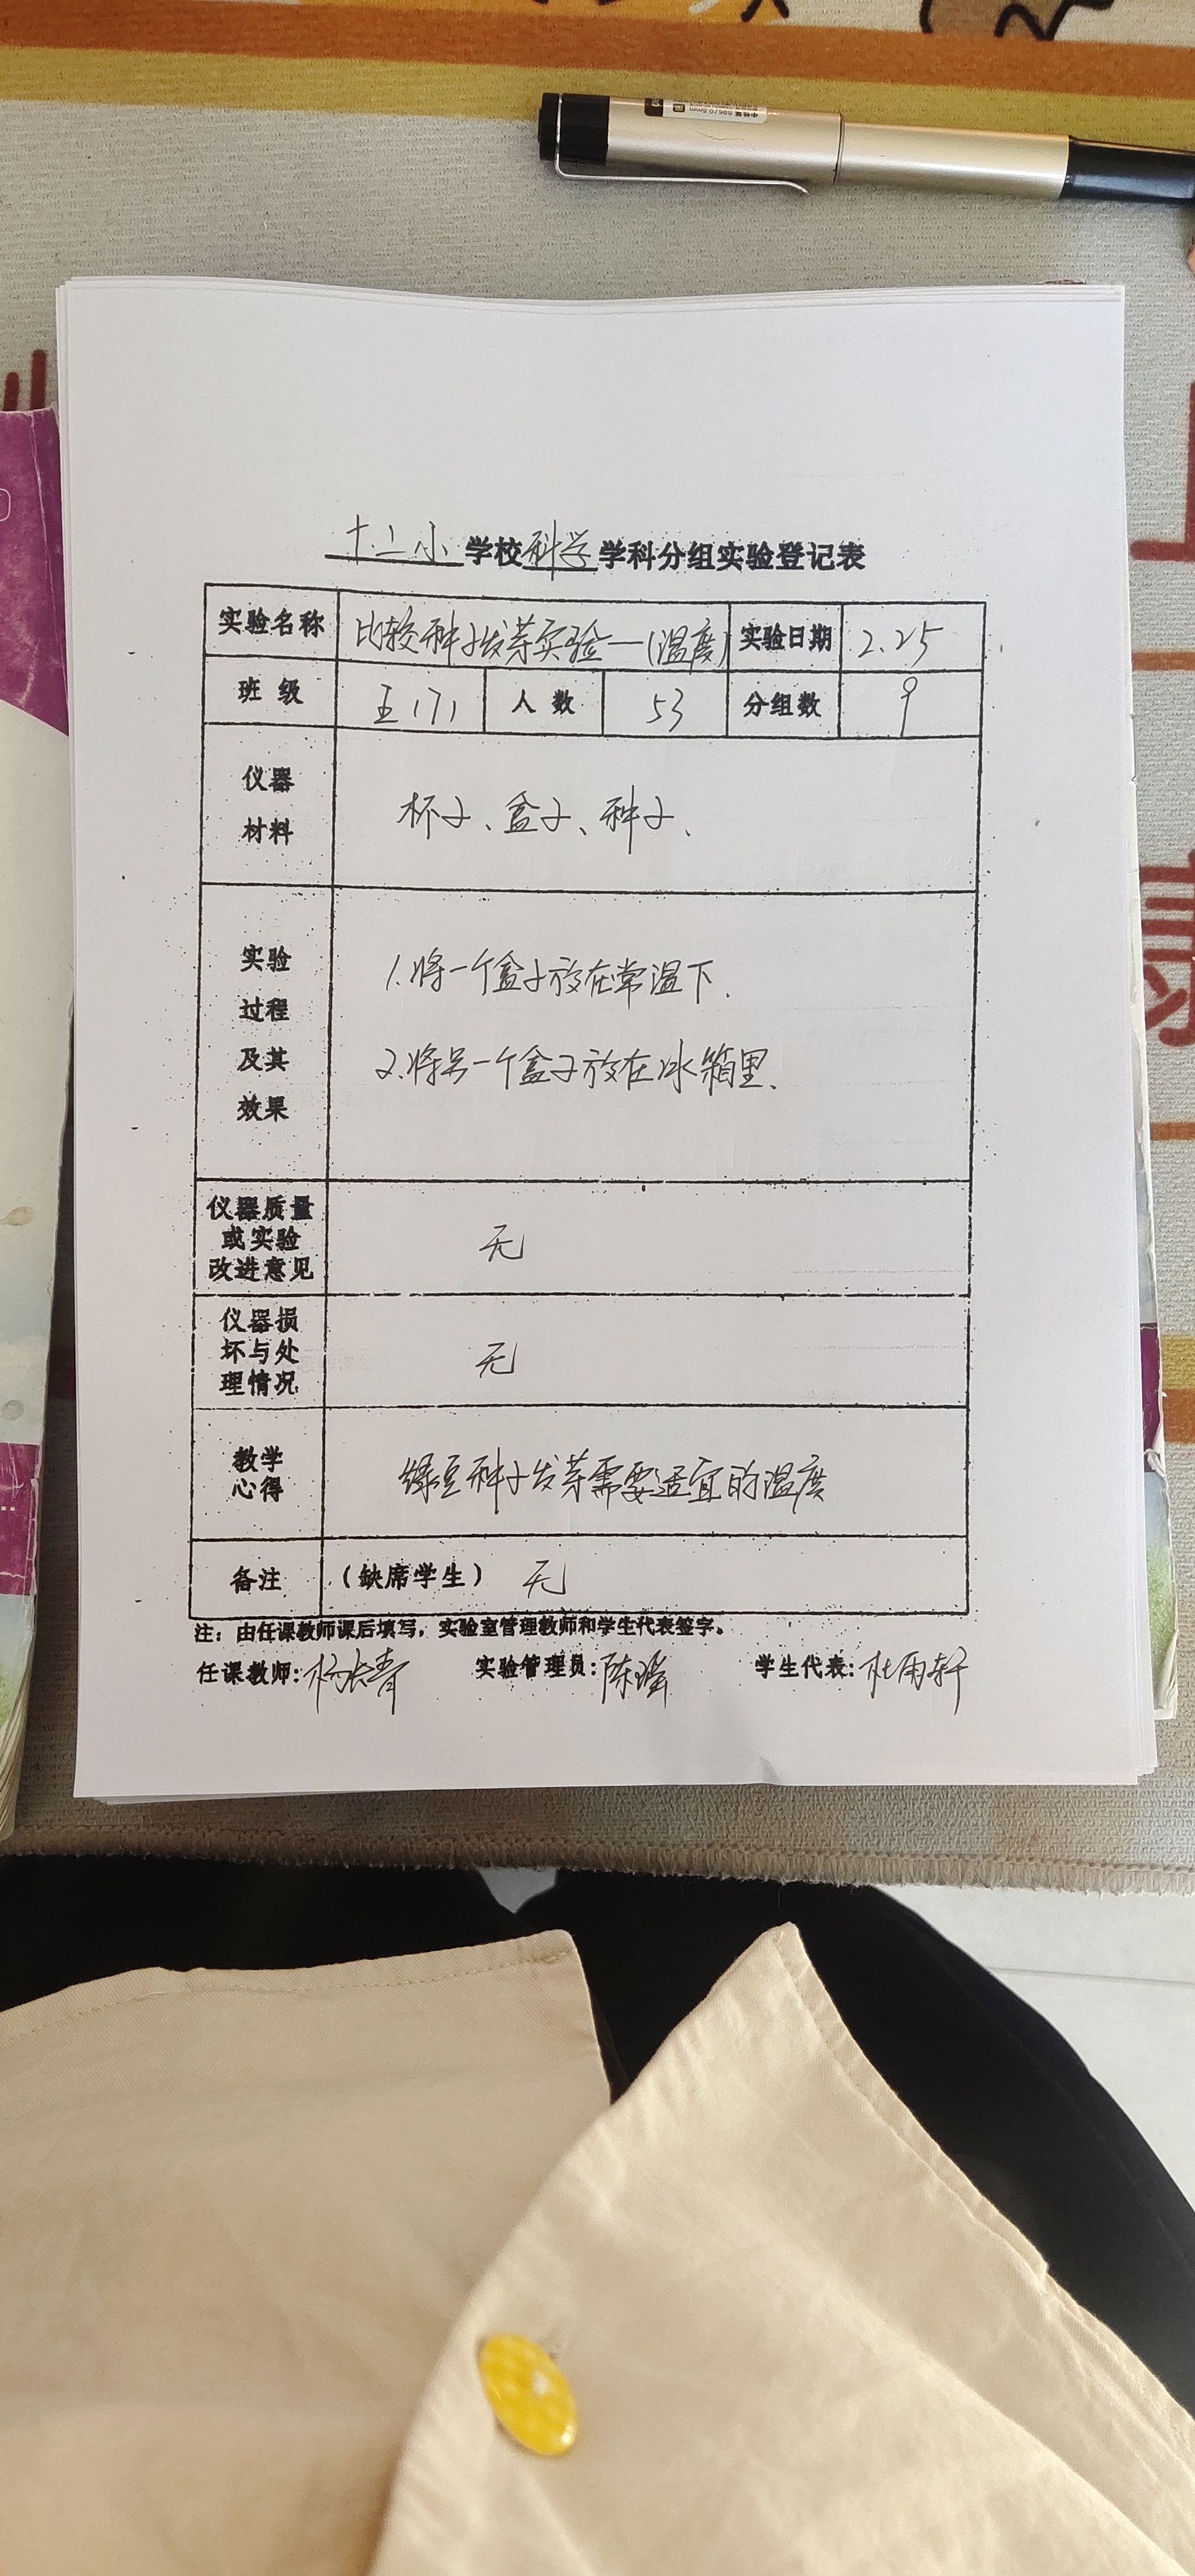 十二小学校科学学科分组实验登记表
实验名称 比较种子发芽实验一(温度) 实验日期 2.25
班级 五(7) 人数 53 分组数 9
仪器
材料
杯子、盒子、种子、
实验
过程
及其
效果
1.将一个盒子放在常温下.
2.将另一个盒子放在冰箱里.
仪器质量
或实验
改进意见
无
仪器损
坏与处
理情况
无
教学
心得
绿豆种子发芽需要适宜的温度
备注 (缺席学生) 无
注：由任课教师课后填写，实验室管理教师和学生代表签字。
任课教师:杨长青 实验管理员:陈瑶 学生代表:杜雨轩